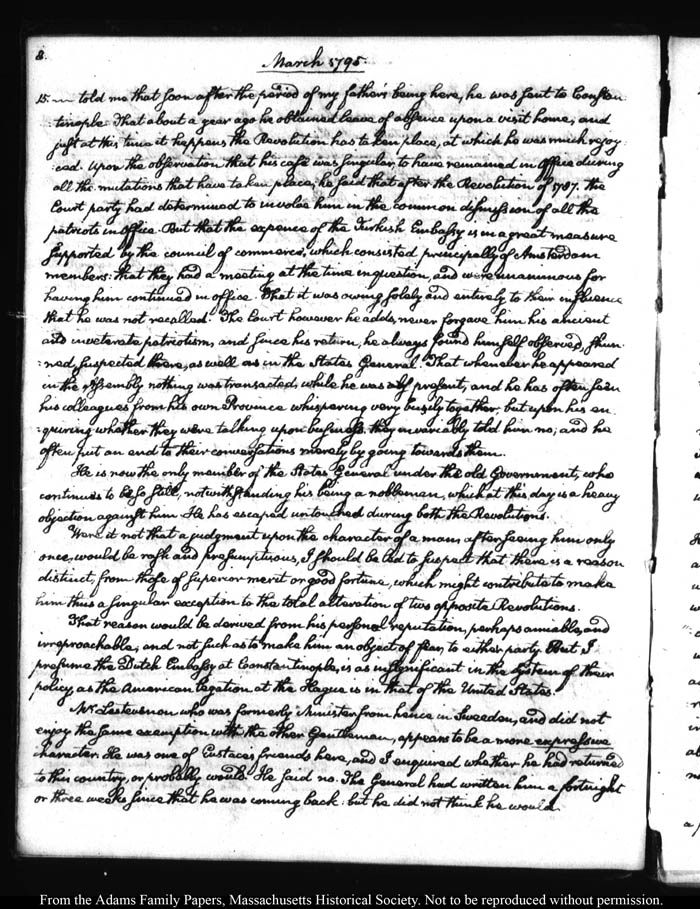 8.
March 1795.
15. told me that soon after the period of my father's being here, he was sent to Constan
:tinople. That about a year ago he obtained leave of absence upon a visit home, and
just at this time it happens the Revolution has taken place, at which he was much rejoy
:ced. Upon the observation that his case was singular, to have remained in office during
all the mutations that have taken place, he said that after the Revolution of 1787. the
Court party had determined to involve him in the common dismission of all the
patriots in office. But that the expence of the Turkish Embassy is in a great measure
supported by the council of commerce, which consisted principally of Amsterdam
members: that they had a meeting at the time in question, and were unanimous for
having him continued in office. That it was owing solely and entirely to their influence
that he was not recalled. The Court however he adds, never forgave him his ancient
and inveterate patriotism, and since his return, he always found himself observed, shun
:ned, suspected there, as well as in the States General. That whenever he appeared
in the Assembly nothing was transacted, while he was present, and he has often seen
his colleagues from his own Province whispering very busily together, but upon his en
:quiring whether they were talking upon business they invariably told him no, and he
often put an end to their conversations merely by going towards them.
He is now the only member of the States General under the old Government, who
continues to be so still, notwithstanding his being a nobleman, which at this day is a heavy
objection against him. He has escaped untouched during both the Revolutions.
Were it not that a judgment upon the character of a man, after seeing him only
once, would be rash and presumptuous, I should be led to suspect that there is a reason
distinct, from those of superior merit or good fortune, which might contribute to make
him thus a singular exception to the total alteration of two opposite Revolutions.
That reason would be derived from his personal reputation, perhaps amiable, and
irreproachable, and not such as to make him an object of fear, to either party. But I
presume the Dutch Embassy at Constantinople, is as insignificant in the system of their
policy, as the American legation at the Hague is in that of the United States.
Mr. Lestevenon who was formerly Minister from hence in Sweeden, and did not
enjoy the same exemption with the other Gentleman, appears to be a more expressive
character. He was one of Eustaces friends here, and I enquired whether he had returned
to this country, or probably would. He said no. The General had written him a fortnight
or three weeks since that he was coming back: but he did not think he would.
From the Adams Family Papers, Massachusetts Historical Society. Not to be reproduced without permission.